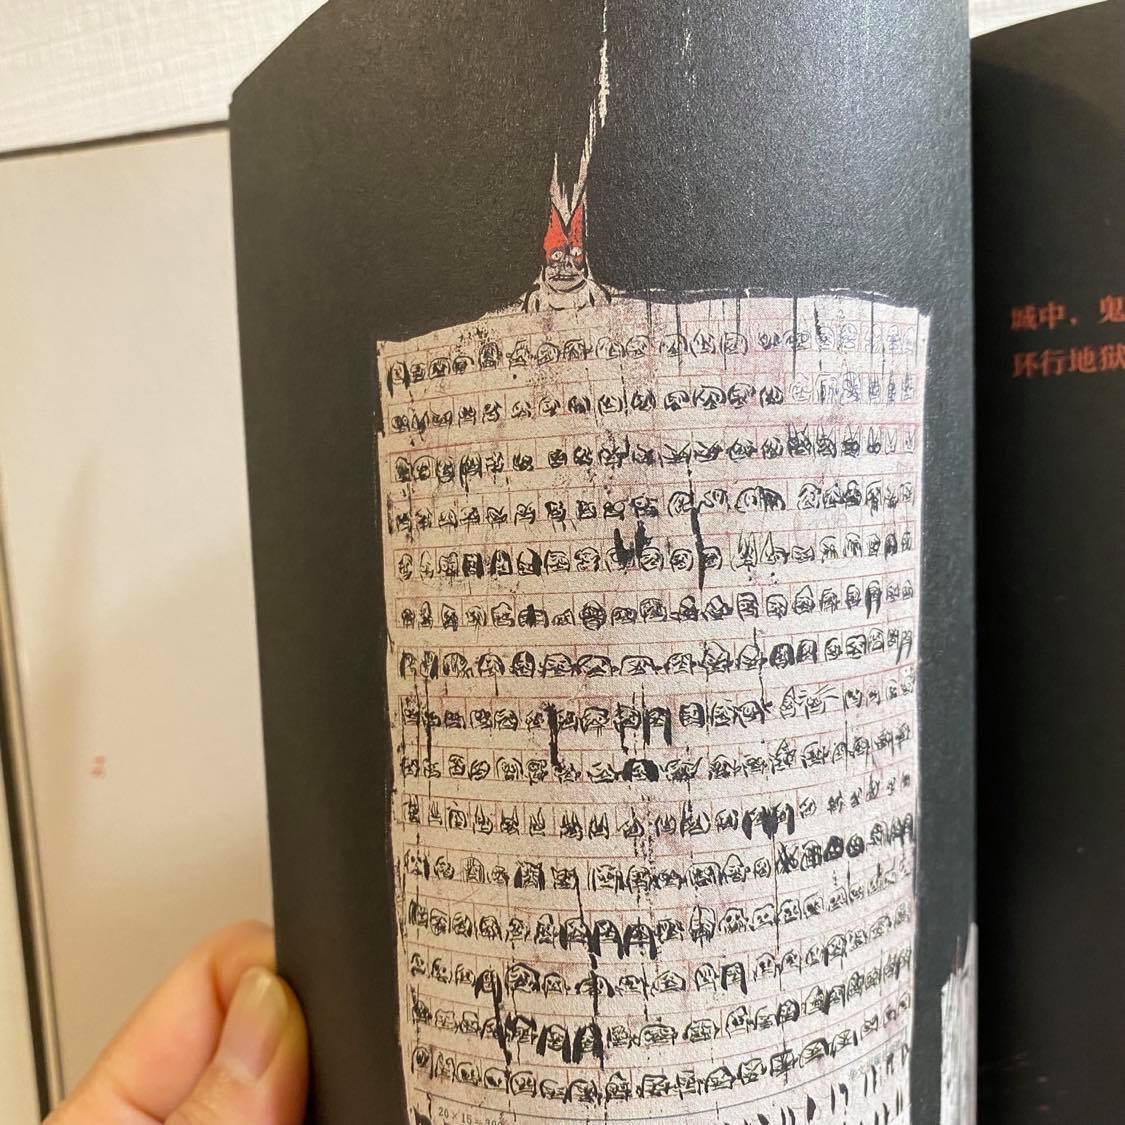 城中，鬼
环行地狱
20×15=300